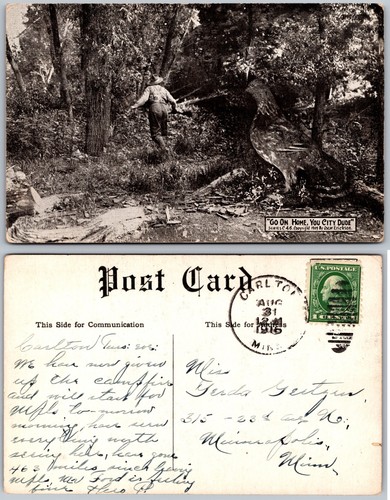 "Go On Home, You City Dude"
Post Card
This Side for Communication
This Side for Address
CARLTON
AUG
31
1916
MINN.
U.S. POSTAGE
1 CENT 1
Carlton Tues: eve:
We have now given
up the campfire
and will start for
Mpls tomorrow
morning, have seen
every thing worth
seeing here, have gone
463 miles since leaving
Mpls,
feeling
fine
Miss
Gerda Geitzer,
315 - 23rd ave No:
Minneapolis,
Minn.